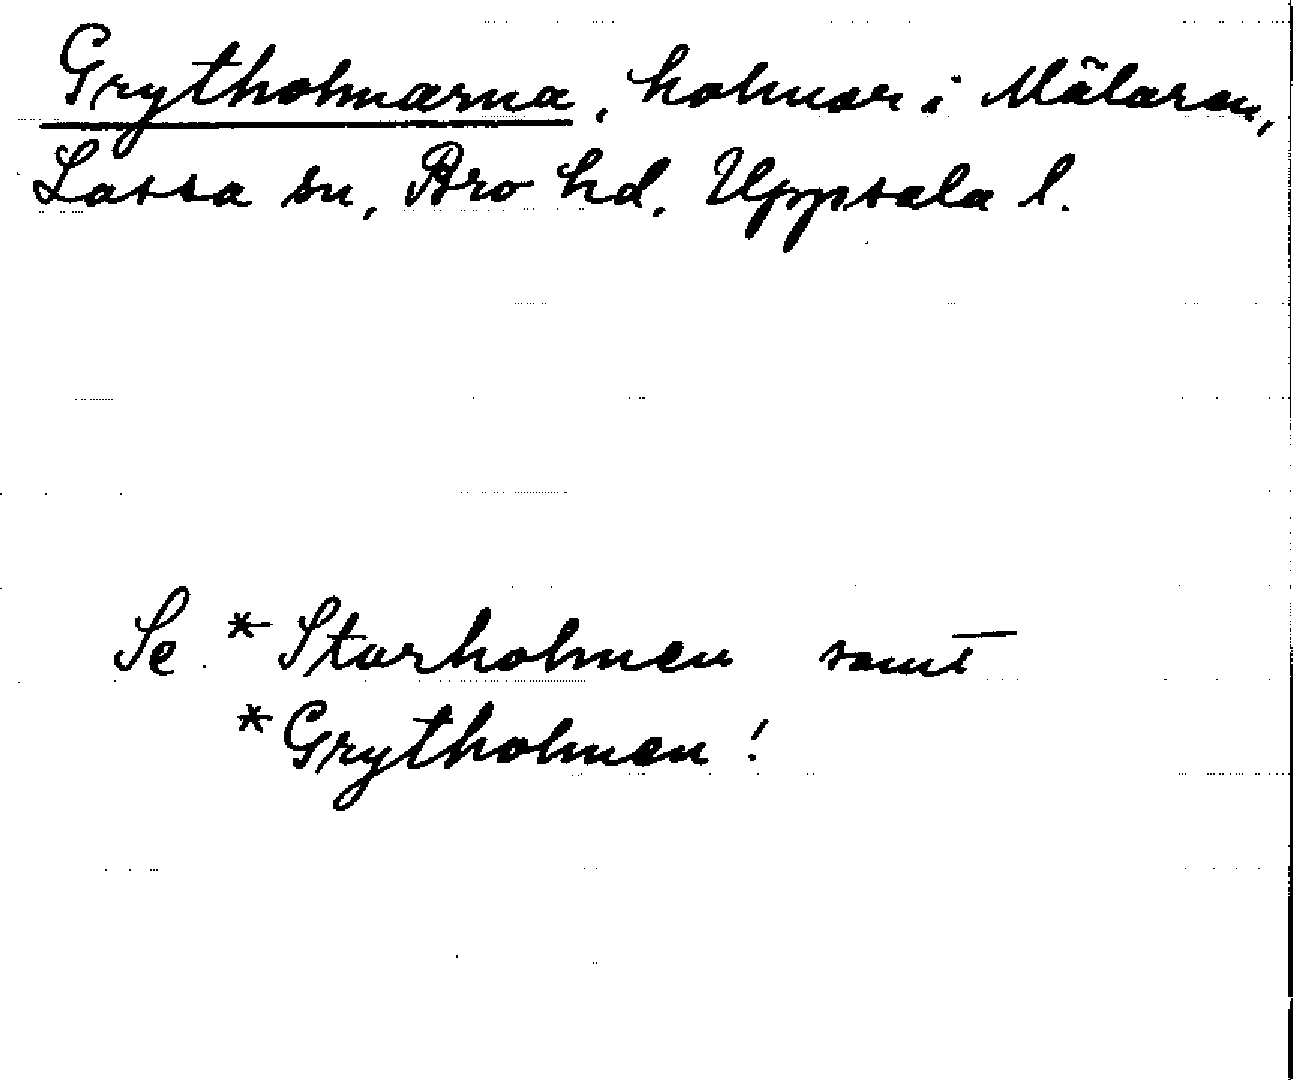 Grytholmarna, holmar i Mälaren,
Lassa sn, Bro hd, Uppsala l.
Se *Storholmen samt
*Grytholmen!